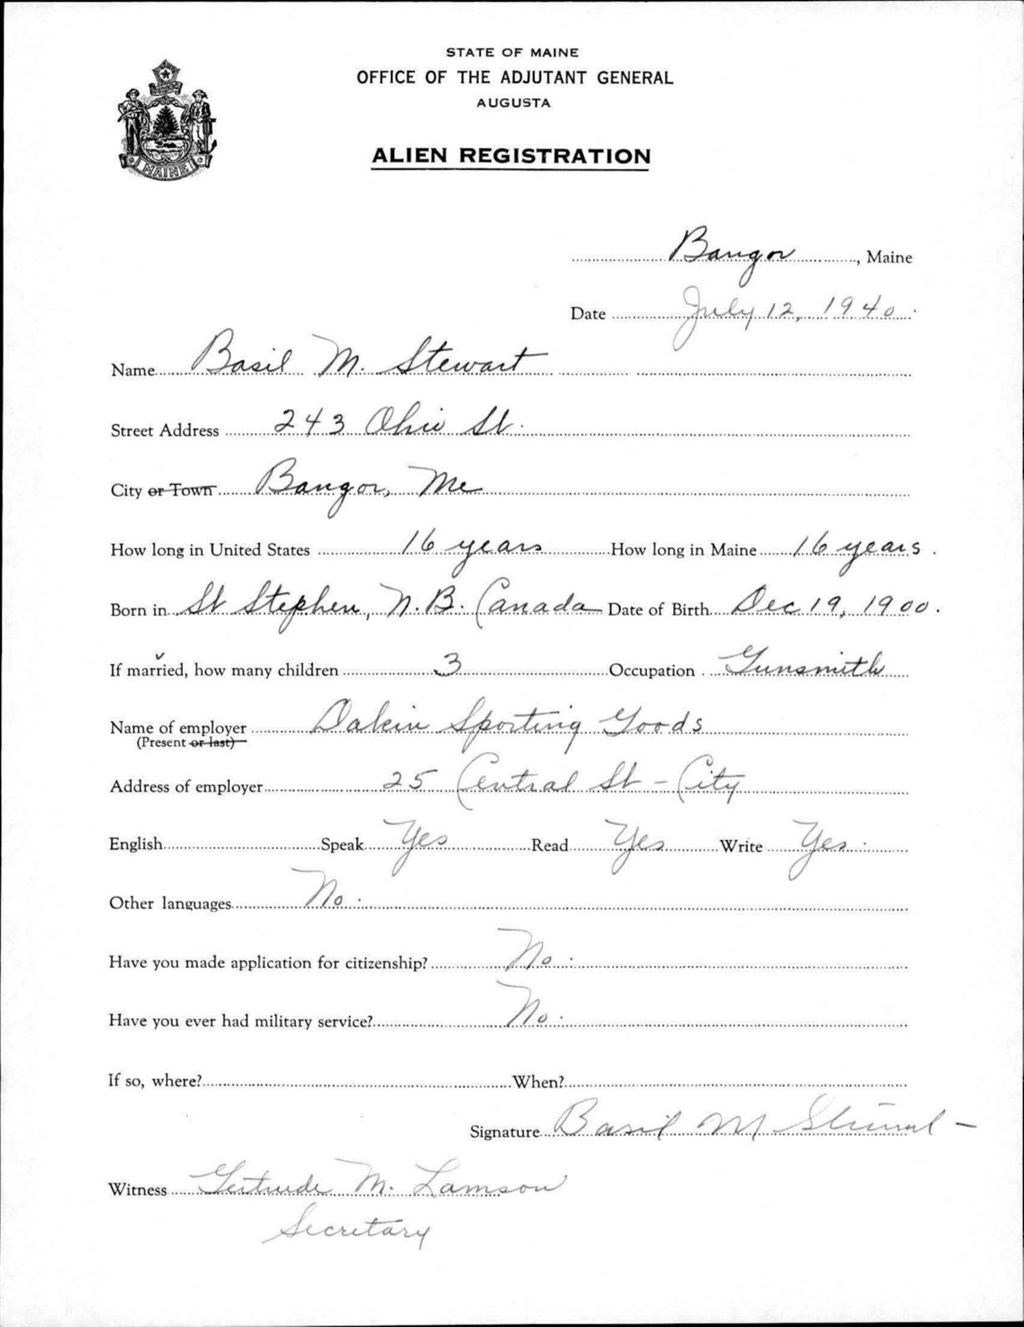 STATE OF MAINE
OFFICE OF THE ADJUTANT GENERAL
AUGUSTA
ALIEN REGISTRATION
MAINE
Bangor, Maine
Date July 12, 1940.
Name Basil M. Stewart
Street Address 243 Ohio St.
City or Town Bangor, Me
How long in United States 16 years How long in Maine 16 years.
Born in St Stephen, N.B. Canada Date of Birth Dec 19, 1900.
If married, how many children 3 Occupation Gunsmith
Name of employer Dakin Sporting Goods
(Present or last)
Address of employer 25 Central St - City
English Speak Yes Read Yes Write Yes.
Other languages No.
Have you made application for citizenship? No.
Have you ever had military service? No.
If so, where? When?
Signature Basil M Stewart -
Witness Gertrude M. Lamson
Secretary